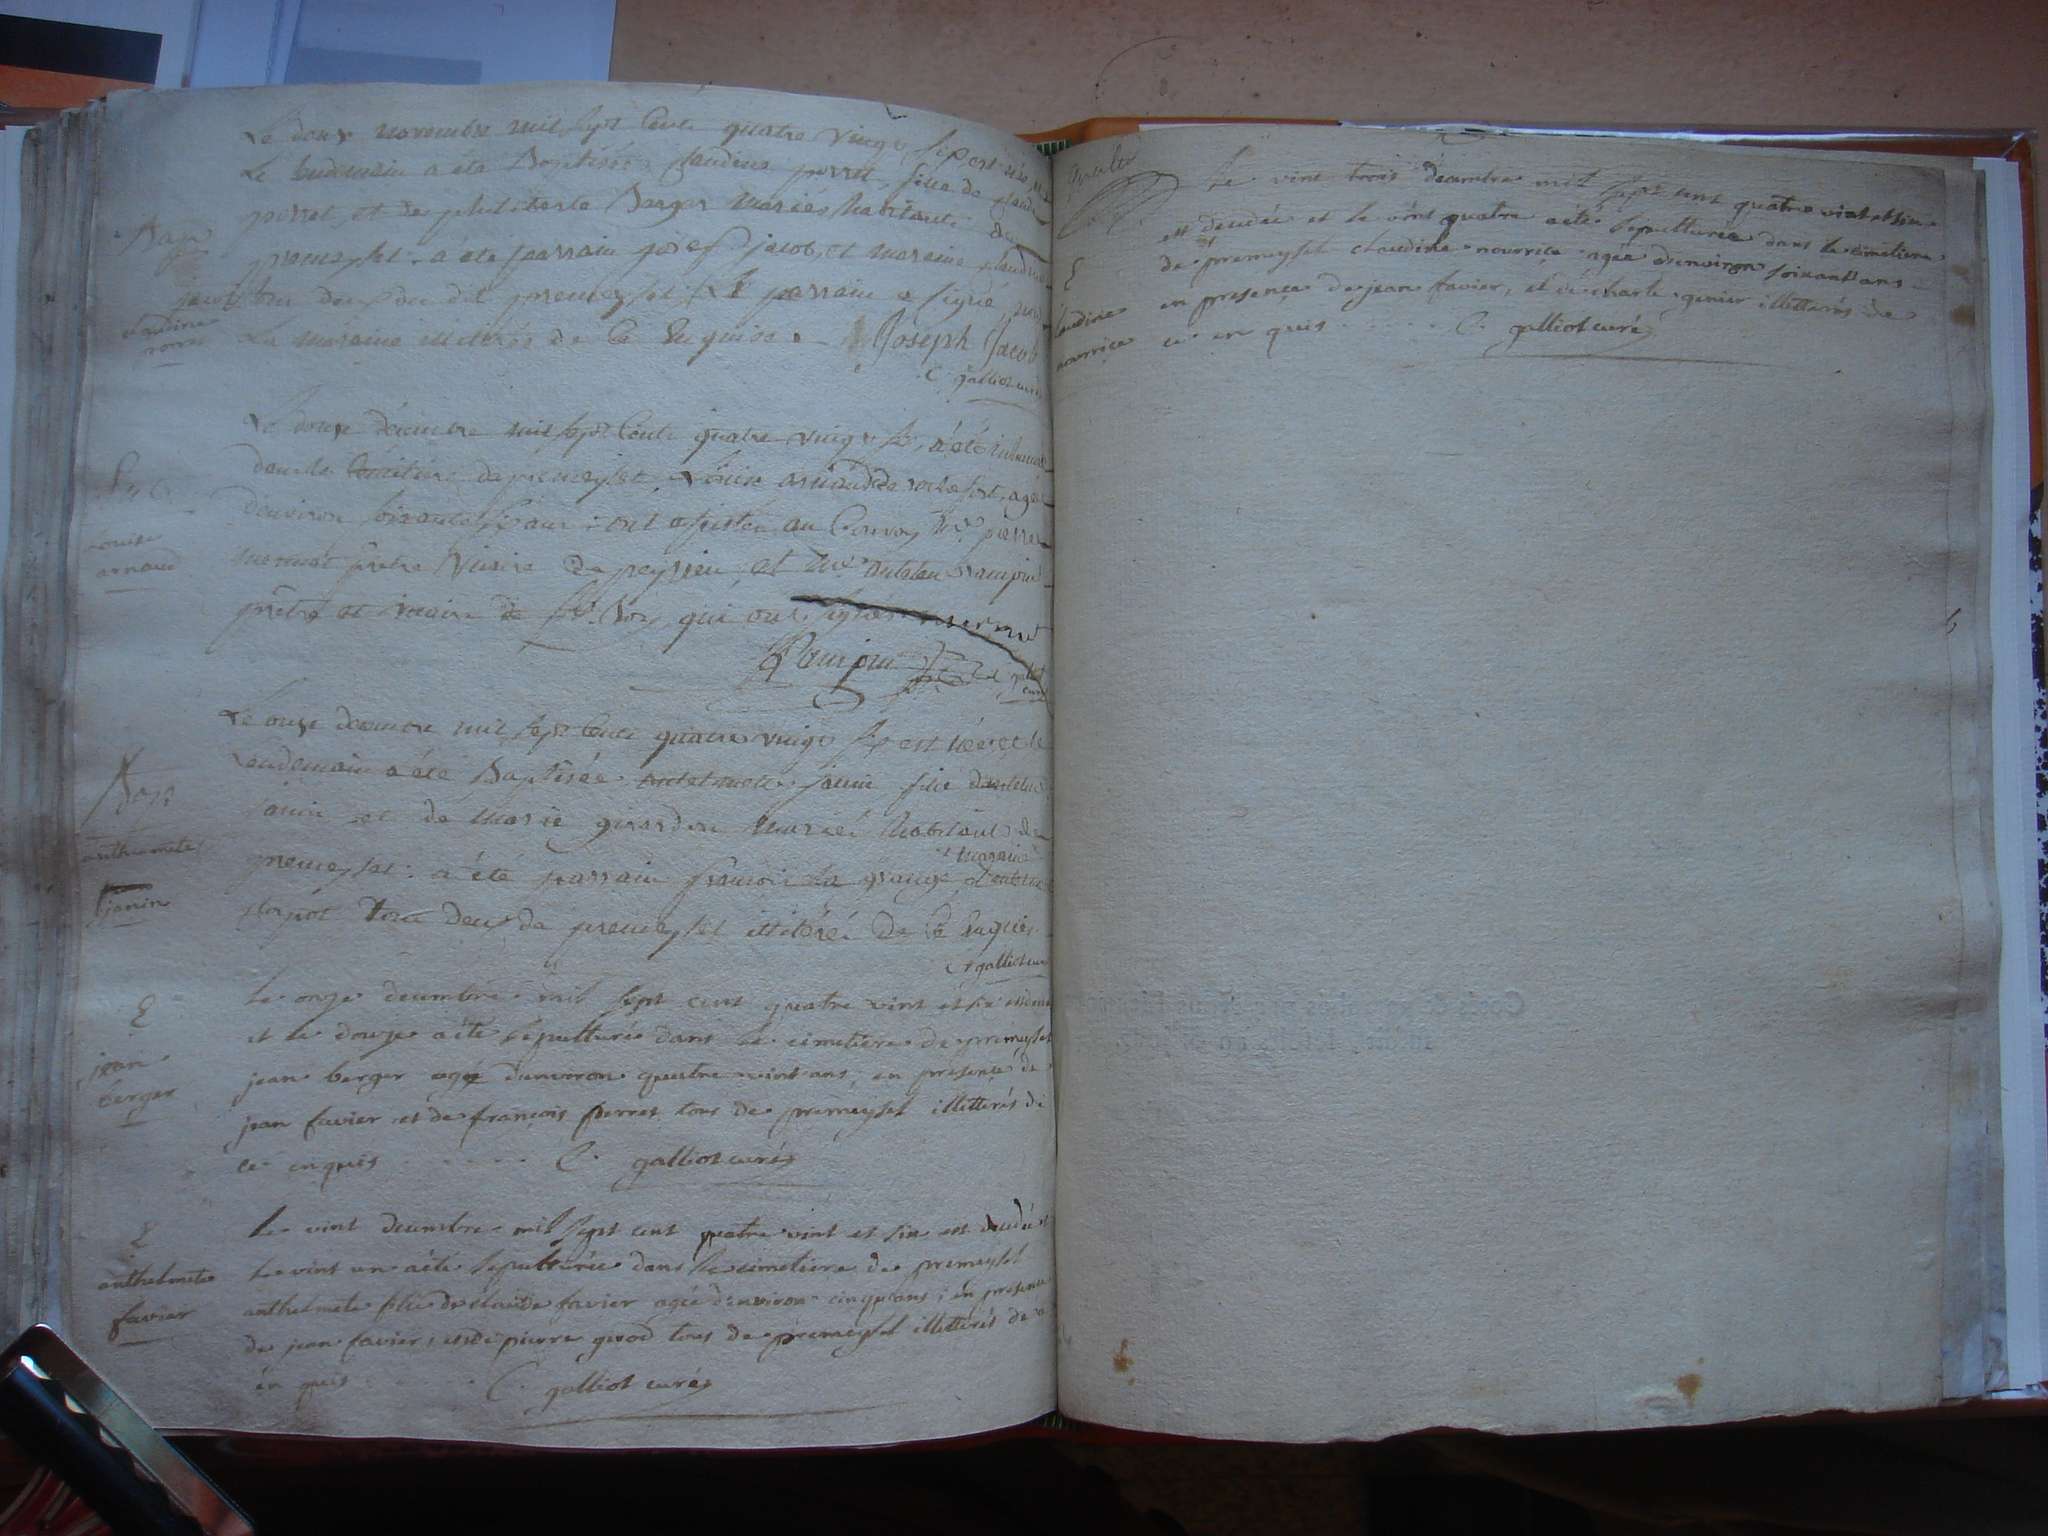 Le douze novembre mil sept cents quatre vingt six est née, et
Le lendemain a été Baptisée claudine perret, fille de claude
perret, et de philiberte Berger mariés habitants de
premeyset : a été parrain josef jacob, et maraine claudine
jacob tou deux du dit premeyset. Le parrain a signé, non
La maraine illiterée de ce Enquise. Joseph Jacob
C. galliot curé
Bap
claudine
perret
Le douze décembre mil sept cents quatre vingt six, a été inhumée
dans le cimitière de premeyset Louise arnaud de rochefort, agée
d'environ soixante six ans : ont assisté au Convoy Mre pierre
mermet prêtre vicaire de peyzieu, et Mre antelme rampin
prêtre et vicaire de St. Bois qui ont signés mermet
Rampin
galliot
curé
Louise
arnaud
Le onze decembre mil sept cents quatre vingt six est née, et le
Lendemain a été Baptisée antelmette janin fille d'antelme
janin et de Marie girardin mariés habitant de
premeyset : a été parrain francois la grange et maraine antelmette
tous deux de premeyset illiterés de ce Enquis
C galliot curé
Bap
anthelmete
janin
Le onze decembre mil sept cent quatre vint et six est decedé
et le douze a été sépulturée dans le cimetiere de premeyset
jean berger agé d'environ quatre vint ans, en presençe de
jean favier et de françois perret tous de premeyset illitterés de
ce enquis . . . . . C. galliot curé
S
jean
berger
Le vint decembre mil sept cent quatre vint et six est decedée et
le vint un a été sépulturée dans le cimetiere de premeyset
anthelmete fille de claude favier agée d'environ cinq ans ; en presençe
de jean favier, et de pierre girod tous de premeyset illitterés de ce
en quis . . . . . C. galliot curé
S
anthelmete
favier
Le vint trois decembre mil sept cent quatre vint et six
est decedée et le vint quatre a été sépulturée dans le cimetiere
de premeyset claudine nourrice agée d'environ soixant ans
en presençe de jean favier, et de charle genier illitterés de
ce en quis . . . . . C. galliot curé
S
claudine
nourrice